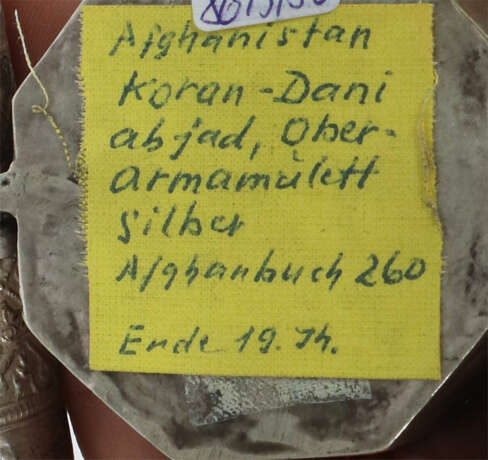 Afghanistan
Koran-Dani
abjad, Ober-
armamulett
Silber
Afghanbuch 260
Ende 19. Jh.